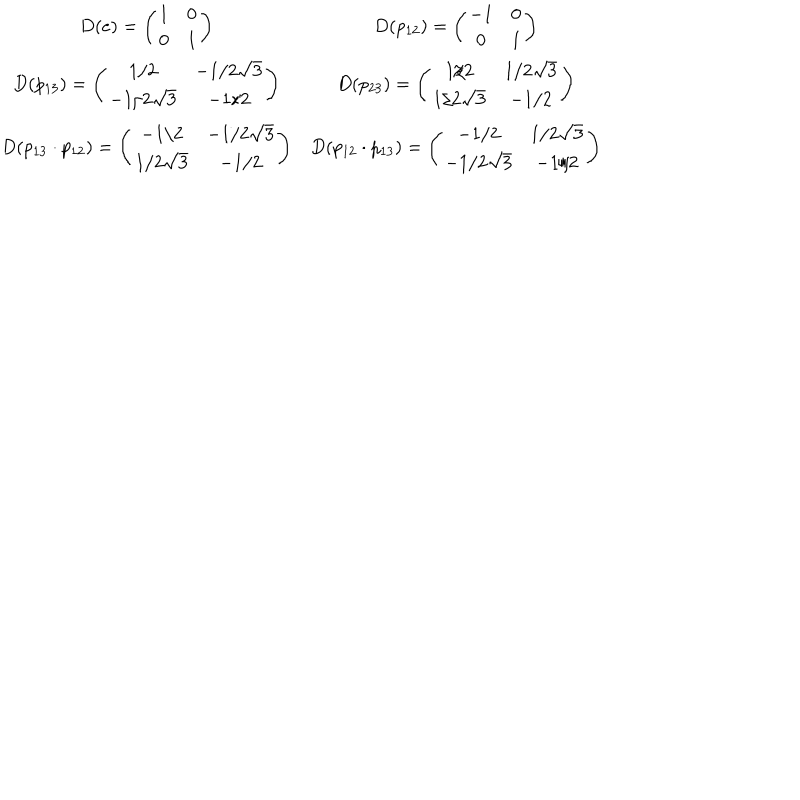 D(e) = ( 1 0 ; 0 1 )    D(p₁₂) = ( −1 0 ; 0 1 )
D(p₁₃) = ( 1/2 −1/2√3 ; −1 2√3 −1 2 )    D(p₂₃) = ( 1 2 1/2√3 ; 1 2√3 −1/2 )
D(p₁₃ · p₁₂) = ( −1\2 −1/2√3 ; 1/2√3 −1/2 )    D(p₁₂ · p₁₃) = ( −1/2 1/2√3 ; −1/2√3 −1 2 )